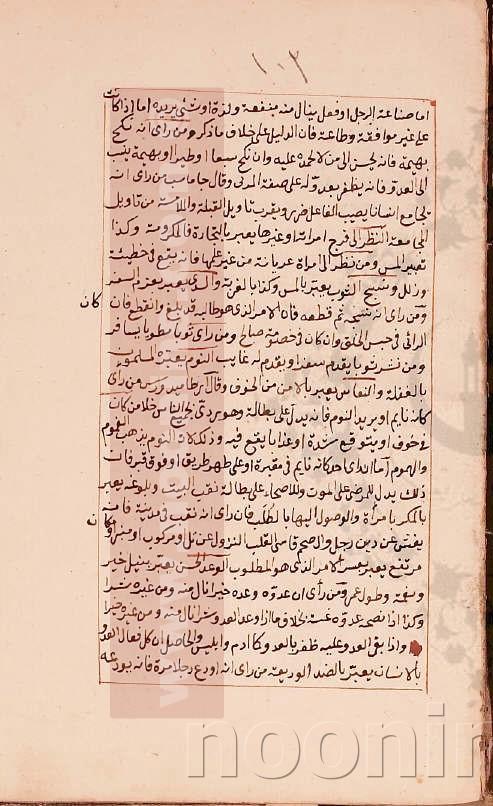 ١٠٢
اما صناعة الرجل او فعل ينال منه منفعة ولذة او شئ يريده اما اذا كانت
على غير موافقة وطاعة فان الدليل على خلاف ما ذكر ومن راى انه نكح
بهيمة فانه يحسن الى من لا يحمده عليه وان نكح سبعا او طيرا او بهيمة ينسب
الى العدو فانه يظفر بعدوه على صفة المرئى وقال جاماسب من راى انه
يجامع انسانا يصيب الفاعل خيرا ويقرب تاويل القبلة والملامسة من تاويل
المجامعة النظر الى فرج امراته او غيرها يعبر بالتجارة المكروهة وكذا
تعبير المس ومن نظر الى امراة عريانة من غير علمها فانه يقع في خطيئة
وزلل ونسج الثوب يعتبر بالمس وكذا بالغربة والذى يعبر بعزم السفر
ومن راى انه نسجه ثم قطعه فان الامر الذى هو طالبه قد بلغ وانقطع فان كان
الرائى في حبس انخلق وان كان في خصومة صالح ومن راى ثوبا مطويا يسافر
ومن نشر ثوبا يقدم سفرا ويقدم له غايب النوم يعتبره المسلمون
بالغفلة والنعاس يعبر بالامن من الخوف وقال ارطاميدورس من راى
كانه نايم او يريد النوم فانه يدل على بطالة وهو ردى لجميع الناس خلا من كان
في خوف او يتوقع شدة او عذابا يقع فيه وذلك لان النوم يذهب الغموم
والهموم اما اذا راى احد كانه نايم في مقبرة او على ظهر طريق او فوق قبر فان
ذلك يدل للمرضى على الموت وللاصحاء على بطالة نقب البيت وبلوغه يعبر
بالمكر بامراة والوصول اليها بالطلب فان راى انه نقب في مدينة فانه
يفتش عن دين رجل والصخر قاسى القلب النزول عن تل او مركوب او منبر او مكان
مرتفع يعبر بعسر الامر الذى هو المطلوب الوعد الحسن يعبر بنيل خير
ونعمة وطول عمر ومن راى ان عدوه وعده خيرا نال منه ومن غيره شرا
وكذا اذا نصحه عدوه غشه بخلاف ما اذا وعد العدو شرا نال منه ومن غيره خيرا
واذا بقى العدو وعليه ظفر بالعدو وكادم وابليس والحاصل ان كل فعال العدو
بالانسان يعبر بالضد الوديعة من راى انه اودع رجلا مرة فانه يودعه
noonir